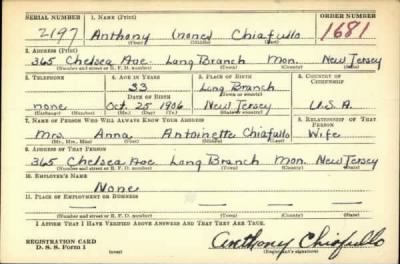 SERIAL NUMBER 1. NAME (Print) ORDER NUMBER
2197 Anthony (none) Chiafullo 1681
(First) (Middle) (Last)
2. ADDRESS (Print)
365 Chelsea Ave. Long Branch Mon. New Jersey
(Number and street or R. F. D. number) (Town) (County) (State)
3. TELEPHONE 4. AGE IN YEARS 5. PLACE OF BIRTH 6. COUNTRY OF CITIZENSHIP
33 Long Branch
DATE OF BIRTH (Town or county)
none Oct. 25 1906 New Jersey U.S.A.
(Exchange) (Number) (Mo.) (Day) (Yr.) (State or country)
7. NAME OF PERSON WHO WILL ALWAYS KNOW YOUR ADDRESS 8. RELATIONSHIP OF THAT PERSON
Mrs. Anna Antoinette Chiafullo Wife
(Mr., Mrs., Miss) (First) (Middle) (Last)
9. ADDRESS OF THAT PERSON
365 Chelsea Ave Long Branch Mon. New Jersey
(Number and street or R. F. D. number) (Town) (County) (State)
10. EMPLOYER'S NAME
None
11. PLACE OF EMPLOYMENT OR BUSINESS
— — — —
(Number and street or R. F. D. number) (Town) (County) (State)
I AFFIRM THAT I HAVE VERIFIED ABOVE ANSWERS AND THAT THEY ARE TRUE.
REGISTRATION CARD Anthony Chiafullo
D. S. S. Form 1 (over) (Registrant's signature)